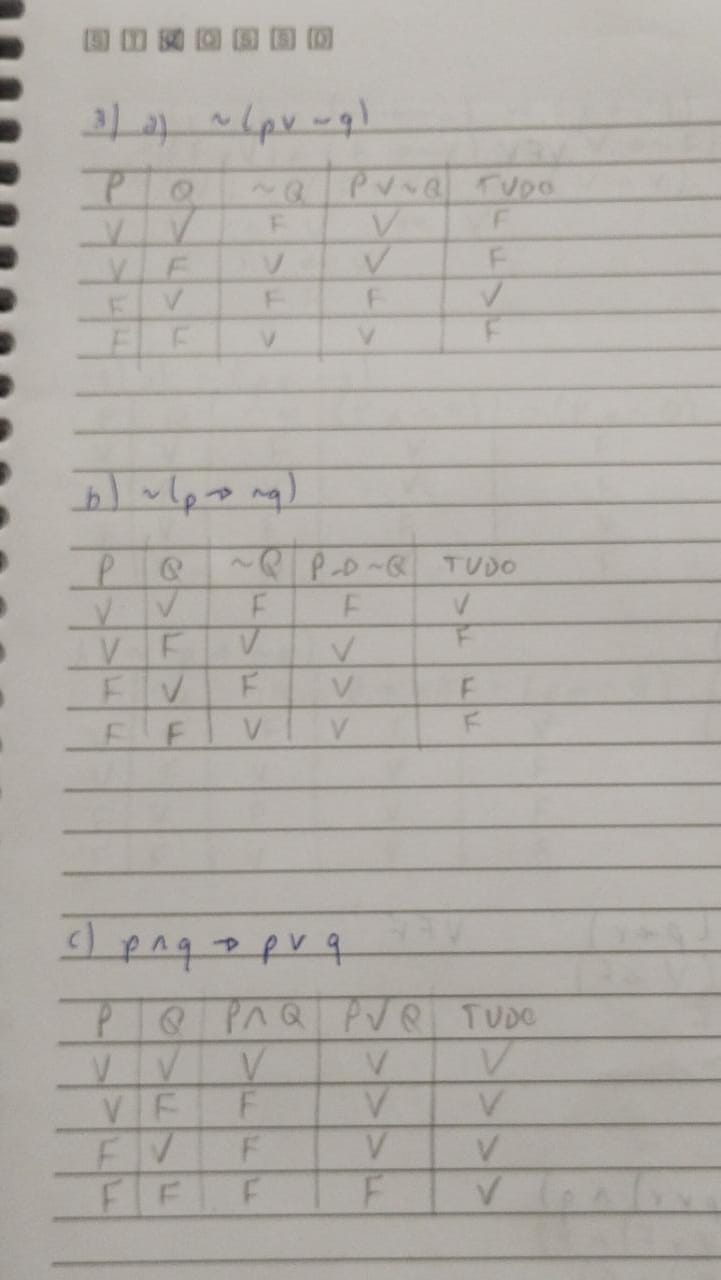 S T Q Q S S D
3) a) ~(p v ~q)
P Q ~Q P V ~Q TUDO
V V F V F
V F V V F
F V F F V
F F V V F
b) ~(p → ~q)
P Q ~Q P → ~Q TUDO
V V F F V
V F V V F
F V F V F
F F V V F
c) p ∧ q → p v q
P Q P ∧ Q P V Q TUDO
V V V V V
V F F V V
F V F V V
F F F F V